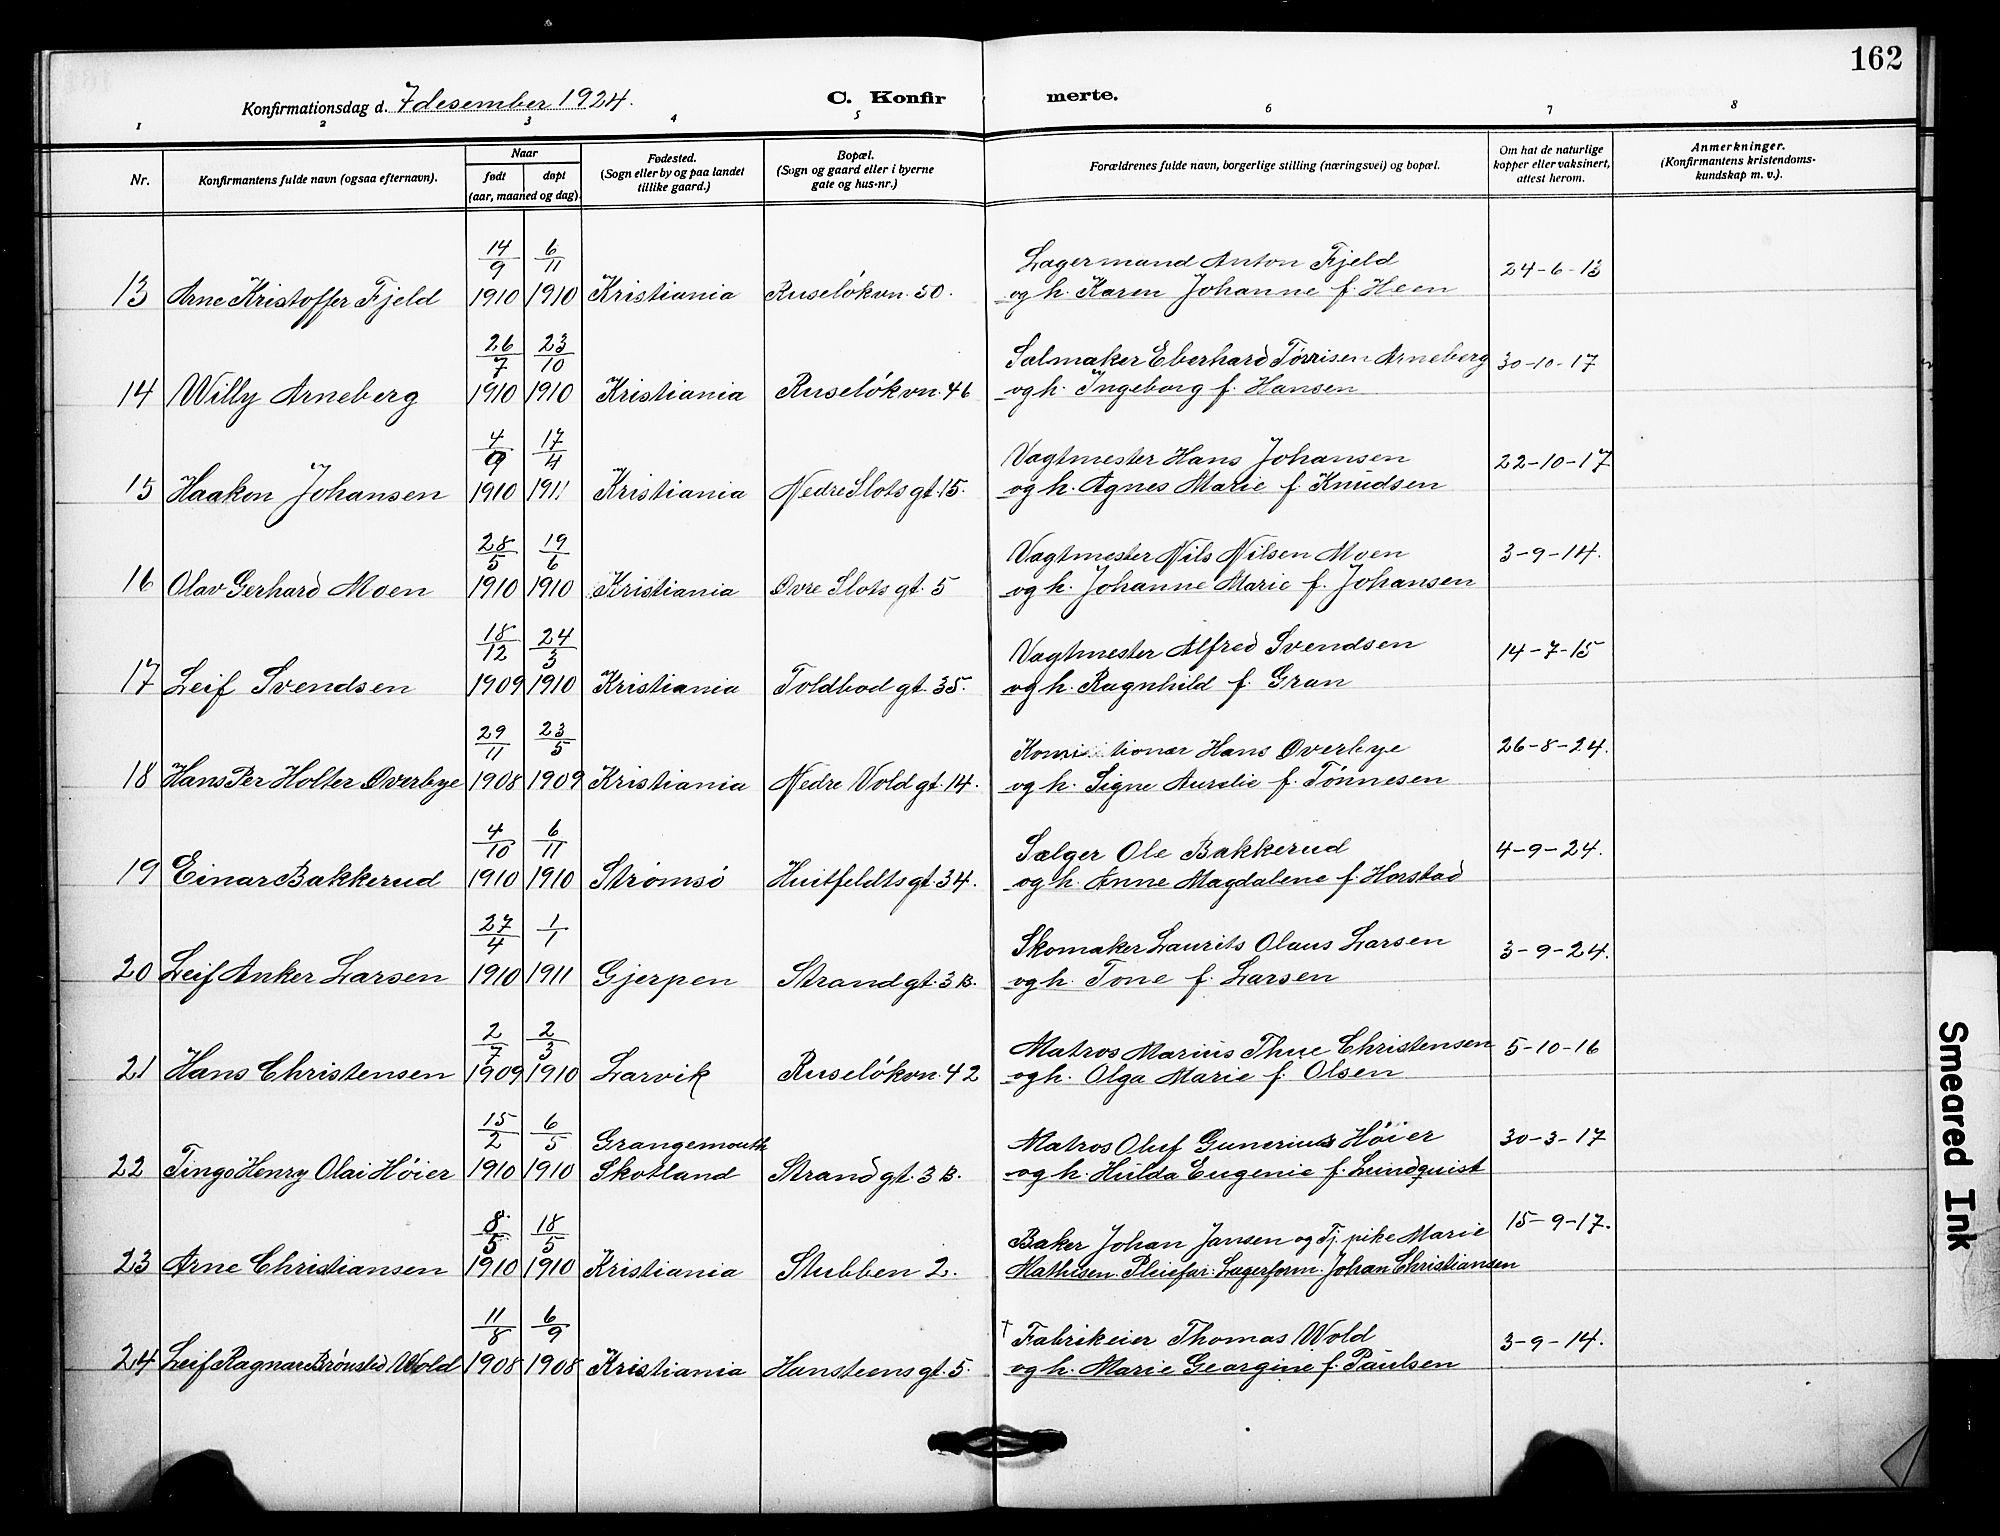 162
Konfirmationsdag d. 7 desember 1924.
C. Konfirmerte.
1 2 3 4 5 6 7 8
Nr.
Konfirmantens fulde navn (ogsaa efternavn).
Naar
født
døpt
(aar, maaned og dag).
Fødested.
(Sogn eller by og paa landet
tillike gaard.)
Bopæl.
(Sogn og gaard eller i byerne
gate og hus-nr.)
Forældrenes fulde navn, borgerlige stilling (næringsvei) og bopæl.
Om hat de naturlige
kopper eller vaksinert,
attest herom.
Anmerkninger.
(Konfirmantens kristendoms-
kundskap m. v.).
14/9 6/11 Lagermand Anton Fjeld 24-6-13
13 Arne Kristoffer Fjeld 1910 1910 Kristiania Ruseløkvn. 50. og h. Karen Johanne f. Heen
26/7 23/10 Salmaker Eberhard Tørrisen Arneberg 30-10-17
14 Willy Arneberg 1910 1910 Kristiania Ruseløkvn. 46 og h. Ingeborg f. Hansen
4/9 17/4 Vagtmester Hans Johansen 22-10-17
15 Haakon Johansen 1910 1911 Kristiania Nedre Slots gt. 15. og h. Agnes Marie f. Knudsen
28/5 19/6 Vagtmester Nils Nilsen Moen 3-9-14.
16 Olav Gerhard Moen 1910 1910 Kristiania Øvre Slots gt. 5 og h. Johanne Marie f. Johansen
18/12 24/3 Vagtmester Alfred Svendsen 14-7-15
17 Leif Svendsen 1909 1910 Kristiania Toldbod gt. 35. og h. Ragnhild f. Gran
29/11 23/5 Hans Øverbye 26-8-24.
18 Hans Per Holter Øverbye 1908 1909 Kristiania Nedre Vold gt. 14. og h. Signe Aurelie f. Tønnesen
4/10 6/11 Sælger Ole Bakkerud 4-9-24.
19 Einar Bakkerud 1910 1910 Strømsø Huitfeldts gt. 34. og h. Anne Magdalene f. Horstad
27/4 1/1 Skomaker Laurits Olaus Larsen 3-9-24.
20 Leif Anker Larsen 1910 1911 Gjerpen Strandgt. 3 B. og h. Tone f. Larsen
2/7 2/3 Matros Marius Thue Christensen 5-10-16
21 Hans Christensen 1909 1910 Larvik Ruseløkvn. 42 og h. Olga Marie f. Olsen
15/2 6/5 Grangemouth Matros Oluf Gunerius Høier 30-3-17
22 Henry Olai Høier 1910 1910 Skotland Strandgt. 3 B. og h. Hulda Eugenie f. Lundquist
8/5 18/5 Baker Johan Jansen og Tj. pike Marie 15-9-17.
23 Arne Christiansen 1910 1910 Kristiania Stubben 2. Mathisen. Pleiefar: Lagerform. Johan Christiansen
11/8 6/9 † Fabrikeier Thomas Wold 3-9-14.
24 Leif Ragnar Brønsted Wold 1908 1908 Kristiania Hansteens gt. 5. og h. Marie Georgine f. Paulsen
Smeared Ink